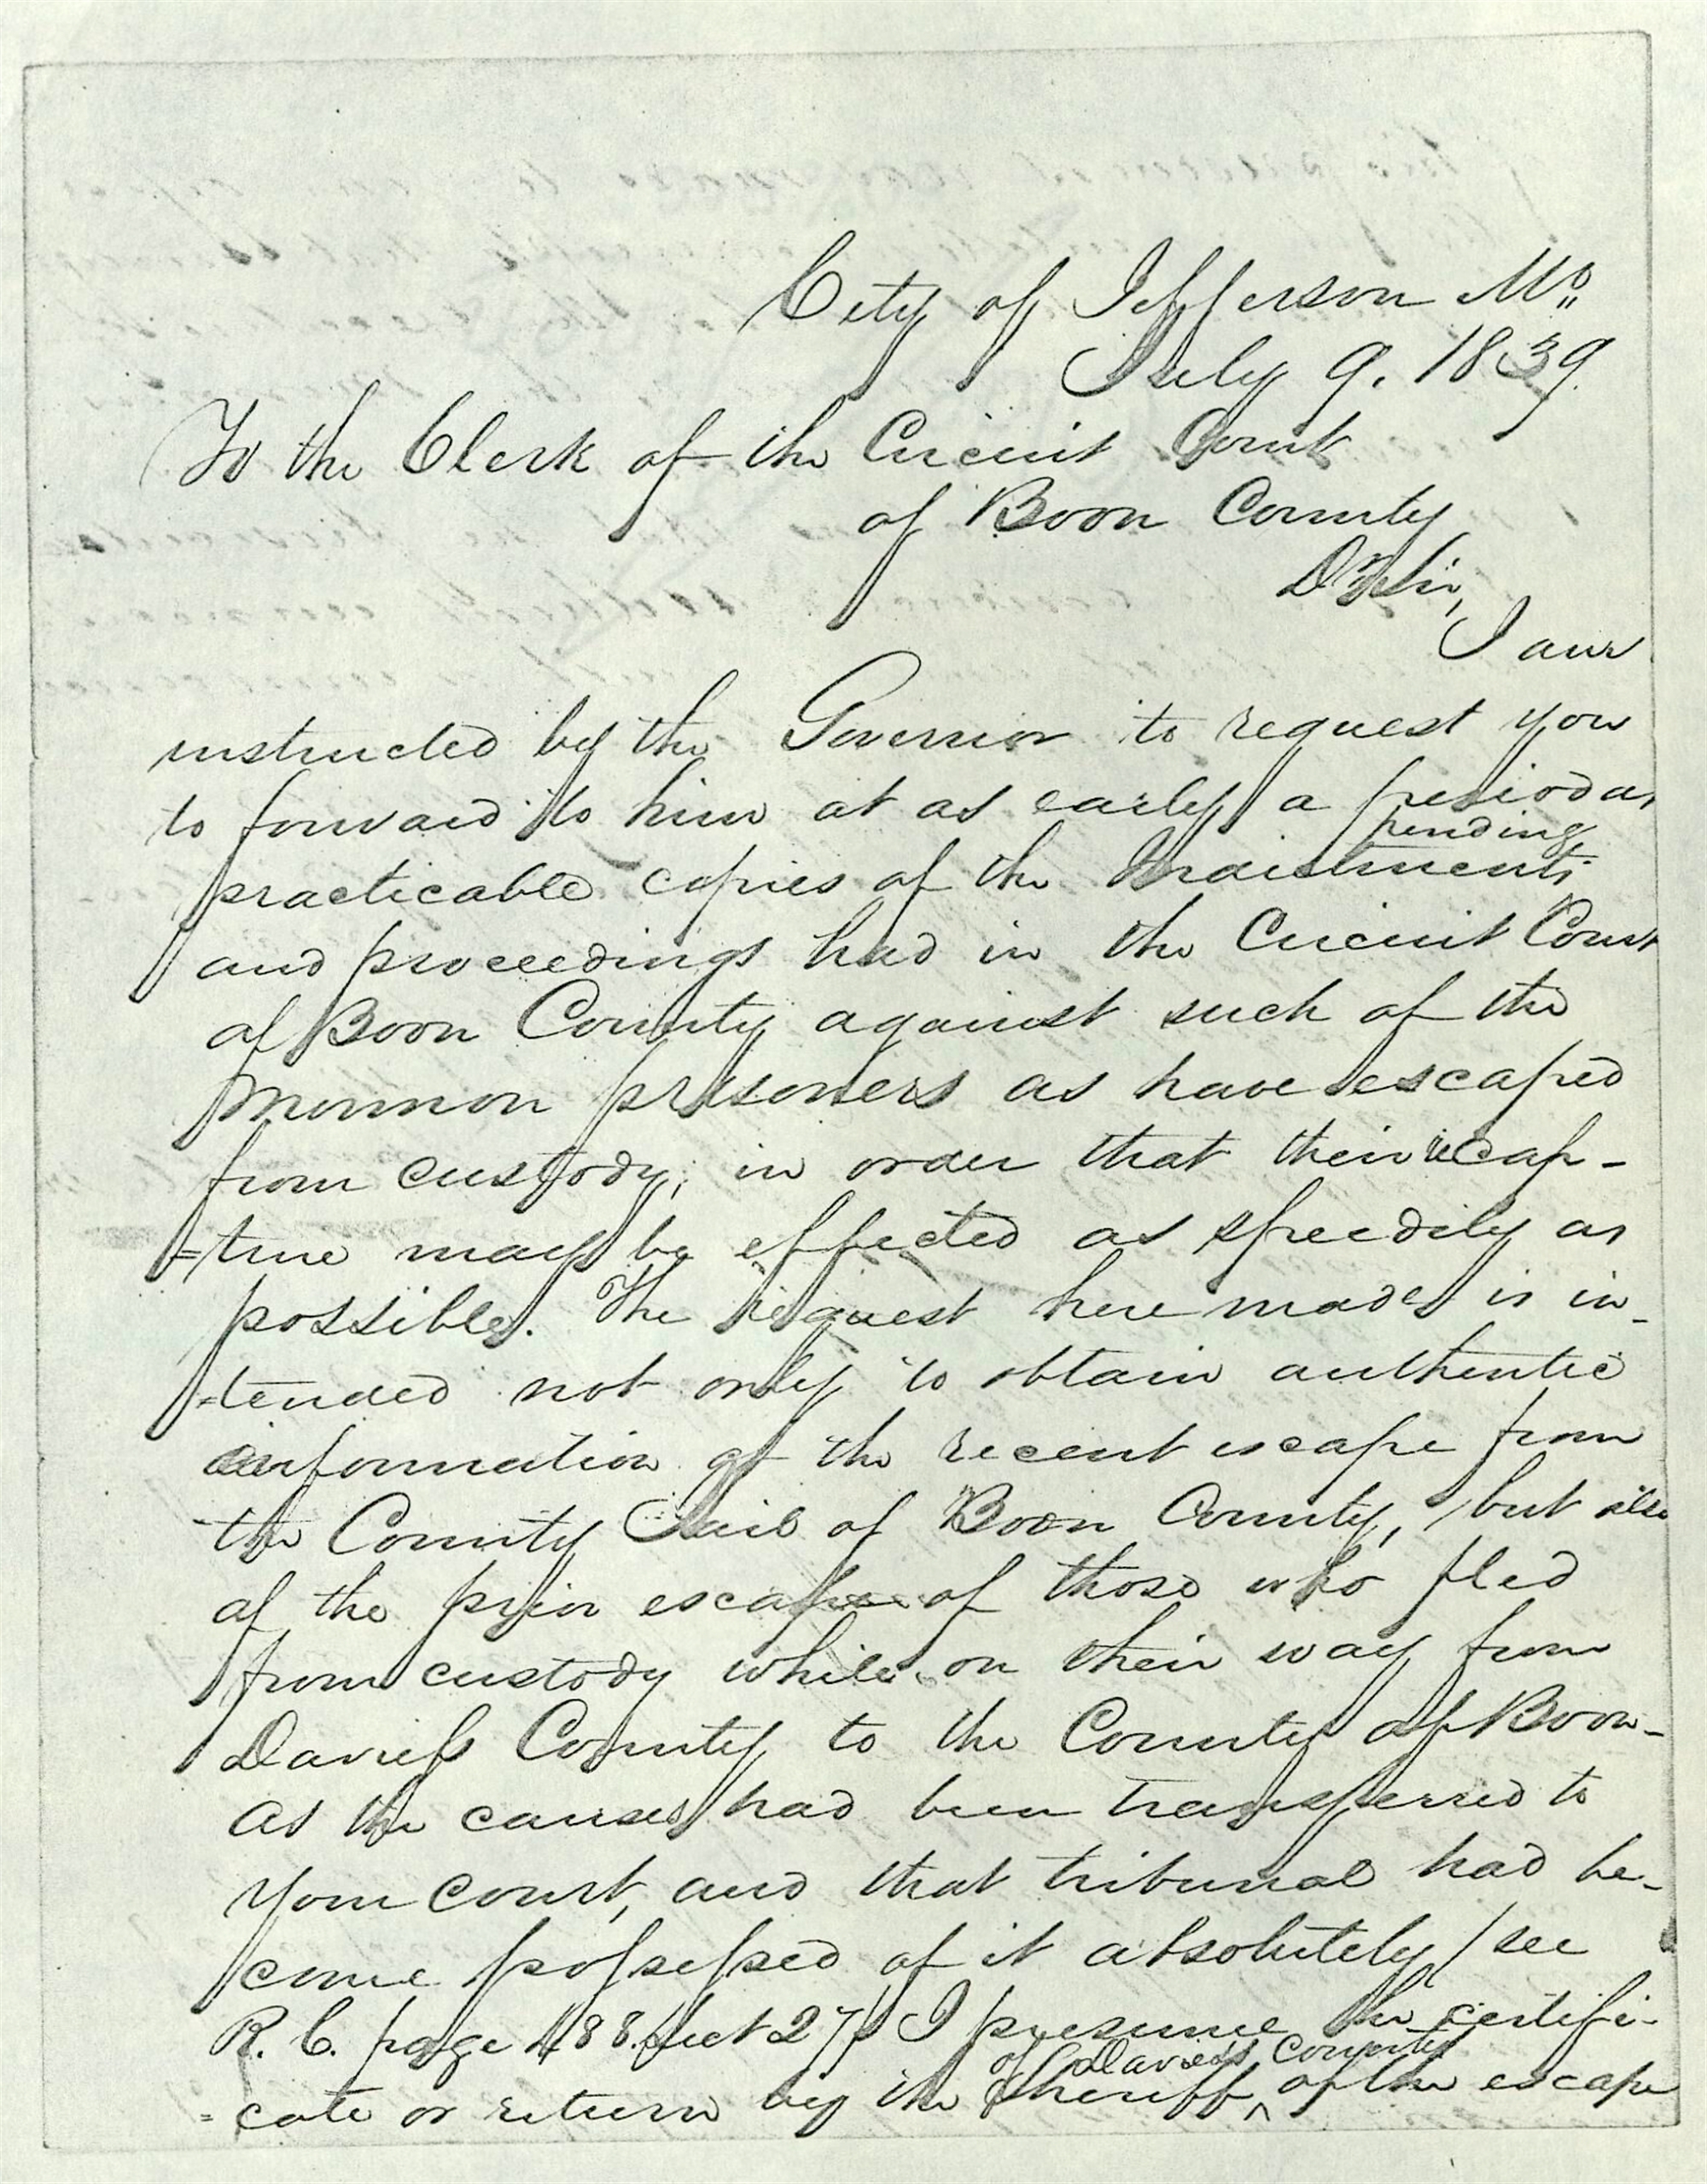 City of Jefferson Mo
July 9. 1839.
To the Clerk of the Circuit Court
of Boon County
Dr Sir,
I am
instructed by the Governor to request you
to forward to him at as early a period as
pending
practicable copies of the Indictments
and proceedings had in the Circuit Court
of Boon County against such of the
Mormon prisoners as have escaped
from custody; in order that their recap-
=ture may be effected as speedily as
possible. The request here made is in-
=tended not only to obtain authentic
information of the recent escape from
the County Jail of Boon County, but also
of the prior escape of those who fled
from custody while on their way from
Daviess County to the County of Boon-
As the causes had been transferred to
your court, and that tribunal had be-
come possessed of it absolutely /see
R. C. page 488. Sect 27/ I presume the certifi-
of Daviess County
=cate or return by the Sheriff ^ of the escape